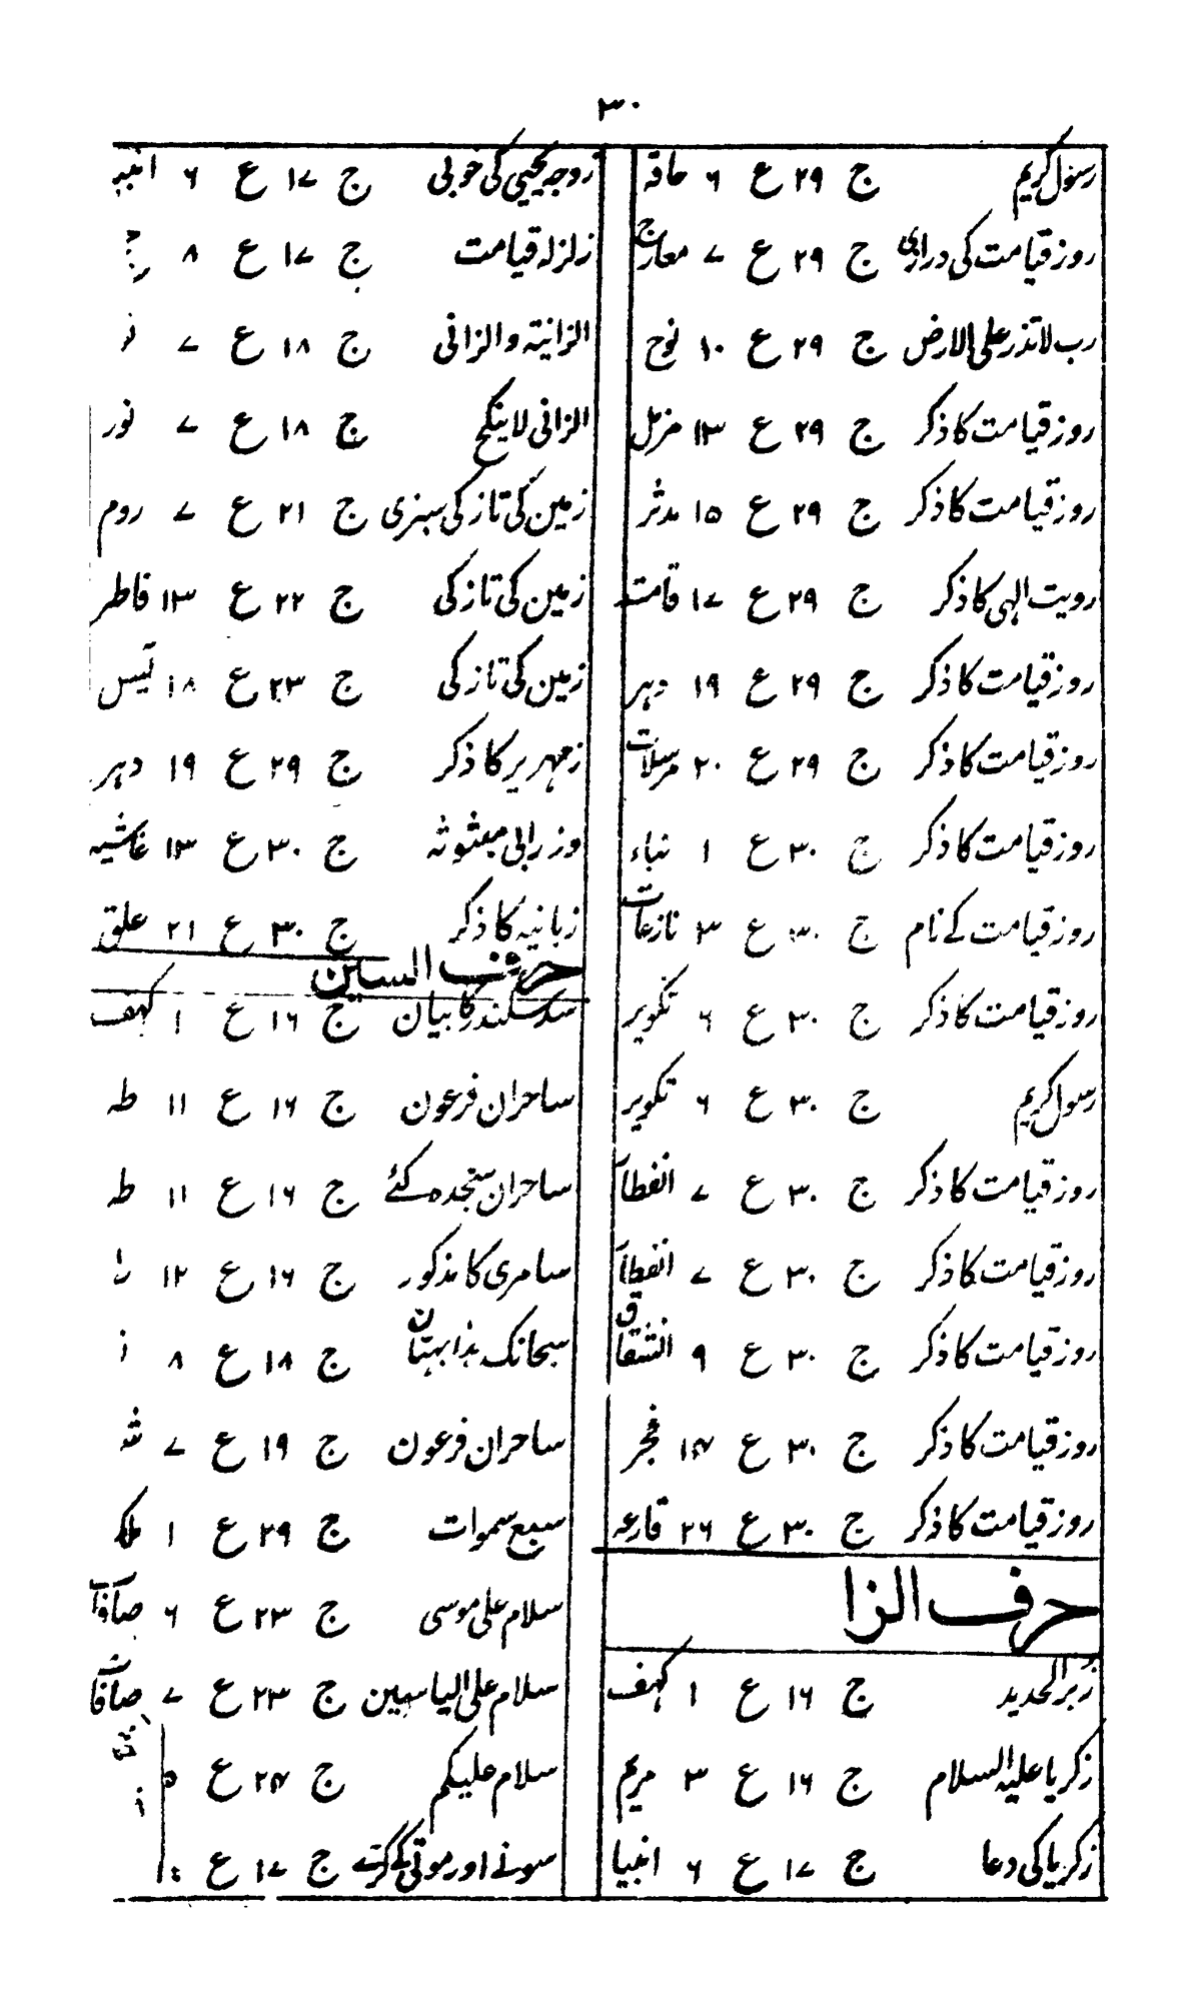 ۳۰
رسول کریم ج ۲۹ ع ۶ حاقہ
روز قیامت کی درازی ج ۲۹ ع ۷ معارج
رب لا تذر علی الارض ج ۲۹ ع ۱۰ نوح
روز قیامت کا ذکر ج ۲۹ ع ۱۳ مزمل
روز قیامت کا ذکر ج ۲۹ ع ۱۵ مدثر
رویت الہی کا ذکر ج ۲۹ ع ۱۷ قامتہ
روز قیامت کا ذکر ج ۲۹ ع ۱۹ دہر
روز قیامت کا ذکر ج ۲۹ ع ۲۰ مرسلات
روز قیامت کا ذکر ج ۳۰ ع ۱ نباء
روز قیامت کے نام ج ۳۰ ع ۳ نازعات
روز قیامت کا ذکر ج ۳۰ ع ۶ تکویر
رسول کریم ج ۳۰ ع ۶ تکویر
روز قیامت کا ذکر ج ۳۰ ع ۷ انفطا
روز قیامت کا ذکر ج ۳۰ ع ۷ انفطا
روز قیامت کا ذکر ج ۳۰ ع ۹ انشقاق
روز قیامت کا ذکر ج ۳۰ ع ۱۴ فجر
روز قیامت کا ذکر ج ۳۰ ع ۲۶ قارعہ
حرف الزا
زبر الحدید ج ۱۶ ع ۱ کہف
زکریا علیہ السلام ج ۱۶ ع ۳ مریم
زکریا کی دعا ج ۱۷ ع ۶ انبیا
زوجہ یحیی کی خوبی ج ۱۷ ع ۶ انبیہ
زلزلہ قیامت ج ۱۷ ع ۸
الزانیۃ والزانی ج ۱۸ ع ۷
الزانی لا ینکح ج ۱۸ ع ۷ نور
زمین کی تازکی سبزی ج ۲۱ ع ۷ روم
زمین کی تازکی ج ۲۲ ع ۱۳ فاطر
زمین کی تازکی ج ۲۳ ع ۱۸ یٰس
زمہریر کا ذکر ج ۲۹ ع ۱۹ دہر
وزرابی مبثوثہ ج ۳۰ ع ۱۳ غاشیہ
زبانیہ کا ذکر ج ۳۰ ع ۲۱ علق
حرف السین
سد سکندر کا بیان ج ۱۶ ع ۱ کہف
ساحران فرعون ج ۱۶ ع ۱۱ طہ
ساحران سجدہ کئے ج ۱۶ ع ۱۱ طہ
سامری کا مذکور ج ۱۶ ع ۱۲
سبحانک ہذا بہتان ج ۱۸ ع ۸
ساحران فرعون ج ۱۹ ع ۷
سبع سموات ج ۲۹ ع ۱ ملک
سلام علی موسی ج ۲۳ ع ۶ صافات
سلام علی الیاسین ج ۲۳ ع ۷ صافات
سلام علیکم ج ۲۴ ع ۵
سونے اور موتی کے کڑے ج ۱۷ ع